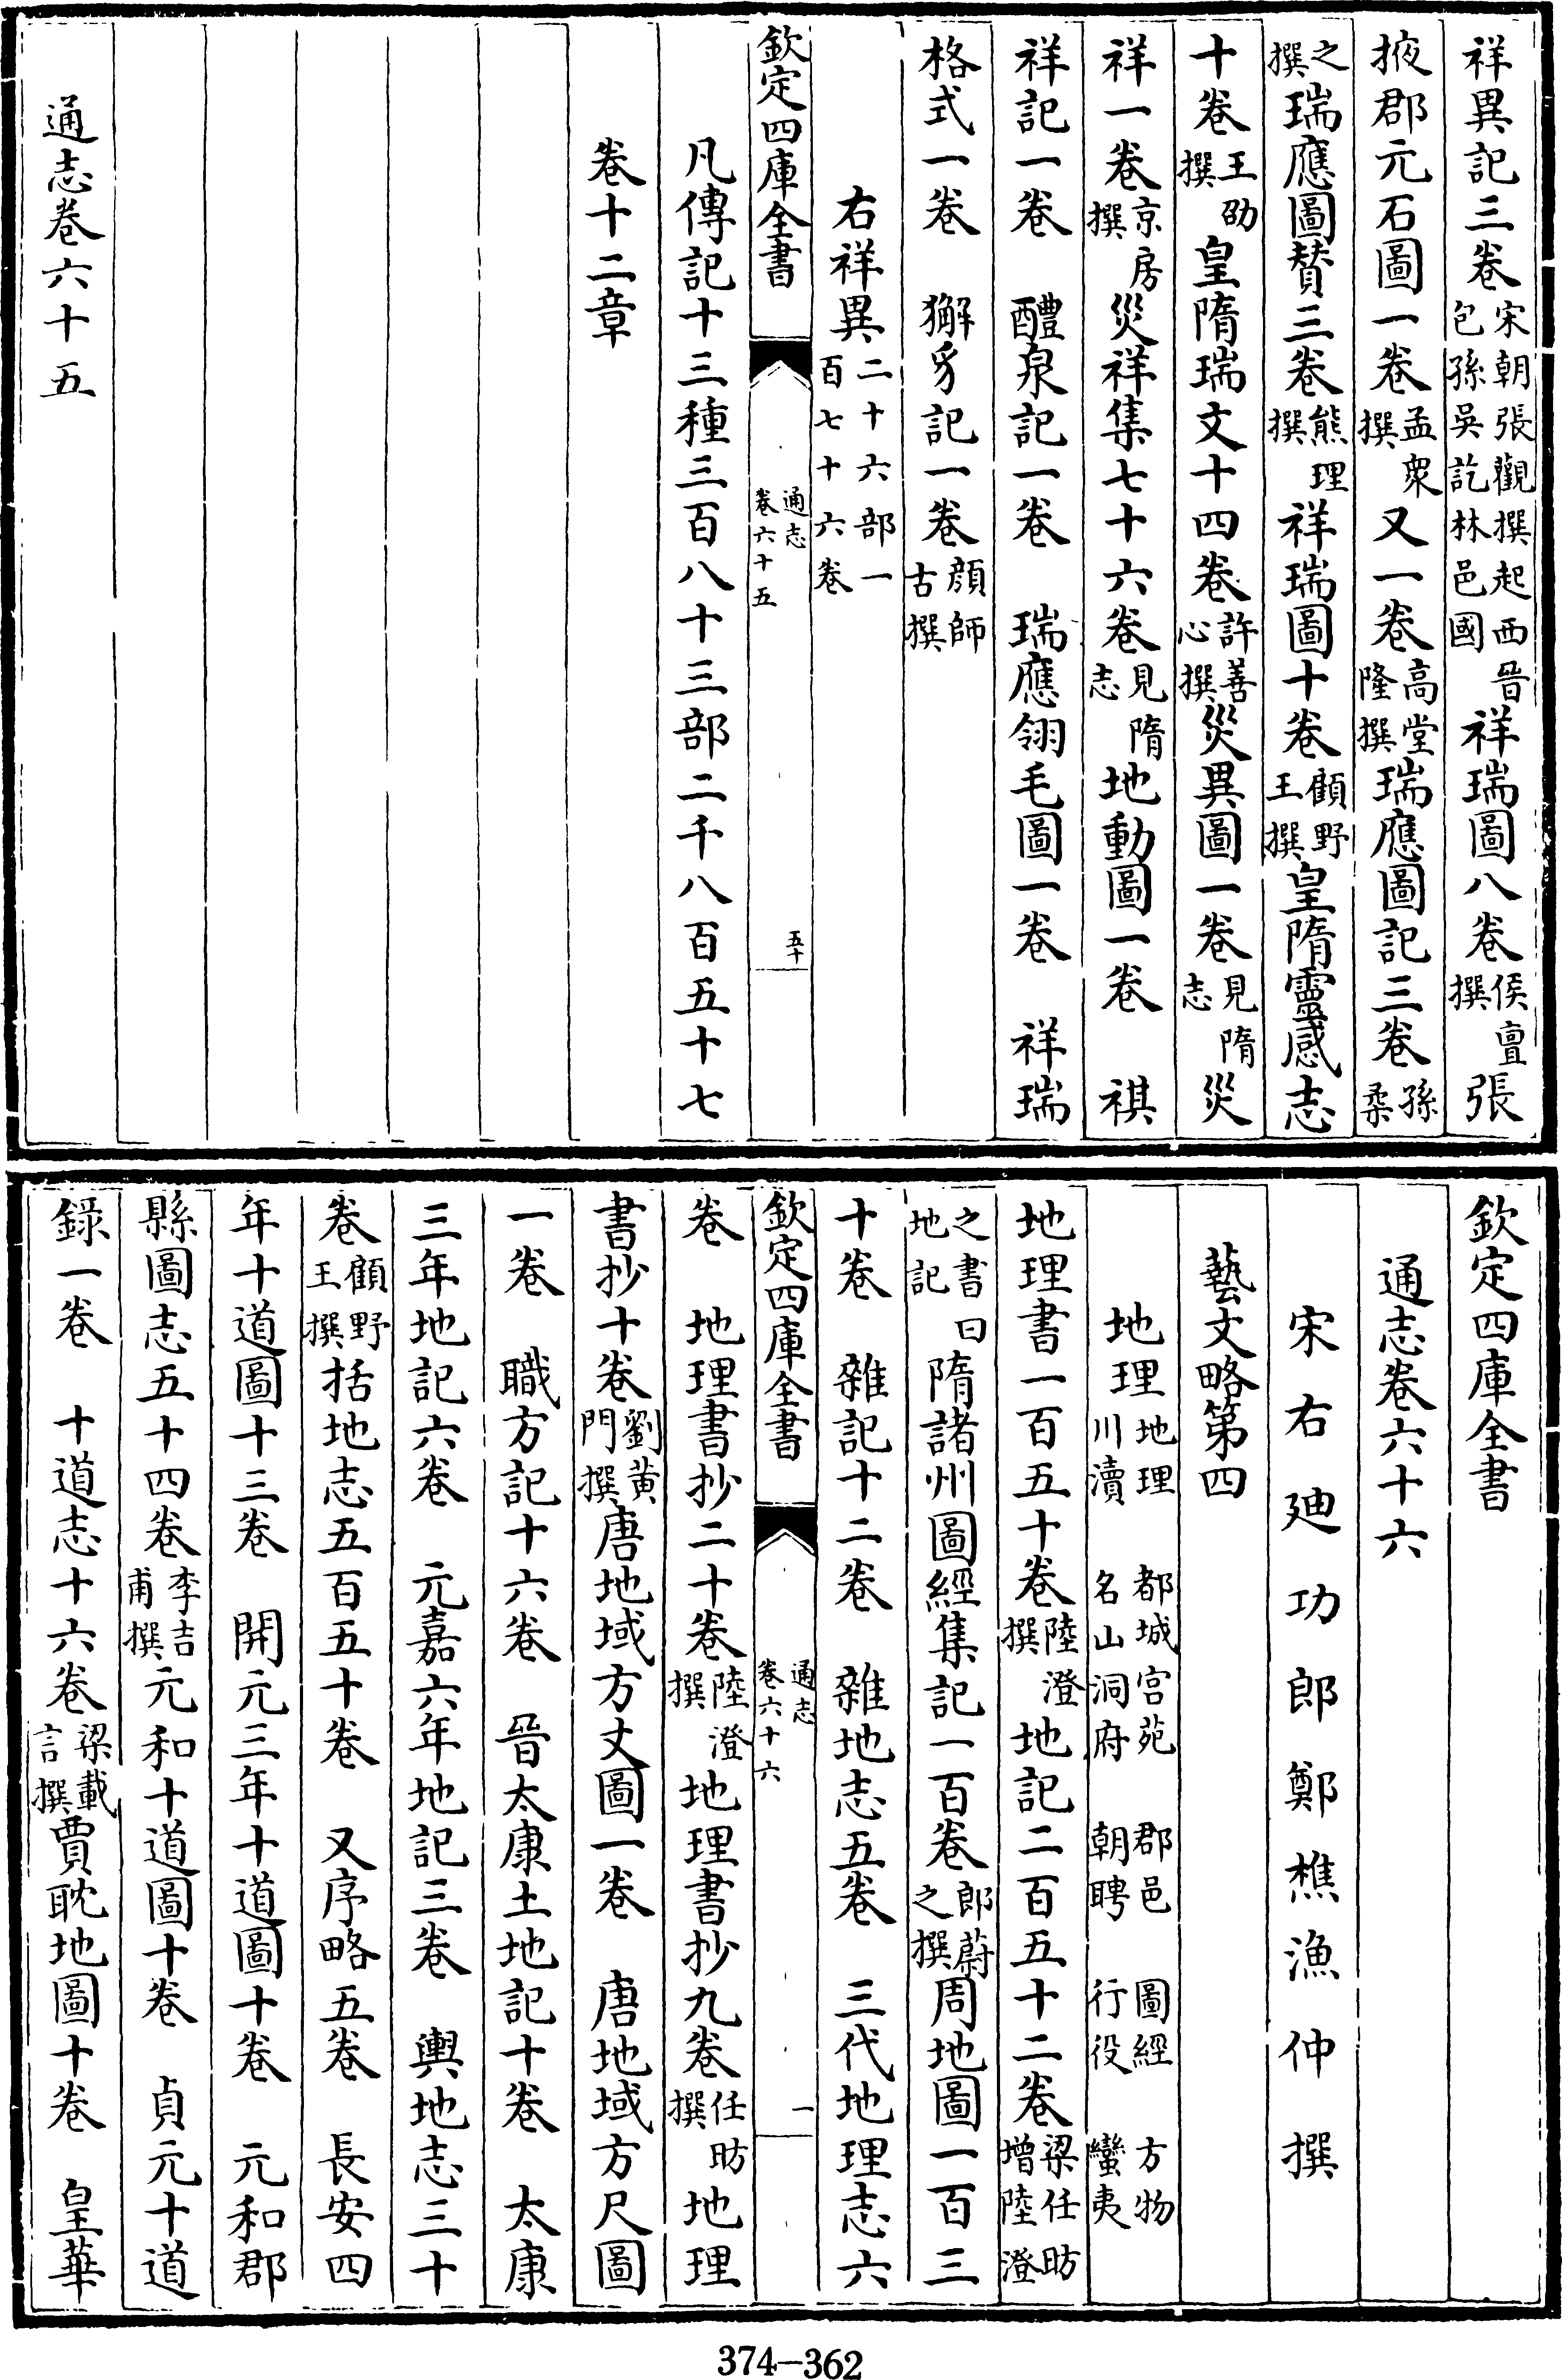 祥異記三卷宋朝張觀撰起西晉包孫吳訖林邑國祥瑞圖八卷侯亶撰張
掖郡元石圖一卷孟衆撰又一卷高堂隆撰瑞應圖記三卷孫柔
之撰瑞應圖賛三卷熊理撰祥瑞圖十卷顧野王撰皇隋靈感志
十卷王劭撰皇隋瑞文十四卷許善心撰災異圖一卷見隋志災
祥一卷京房撰災祥集七十六卷見隋志地動圖一卷 祺
祥記一卷 醴泉記一卷 瑞應翎毛圖一卷 祥瑞
格式一卷 獬豸記一卷顔師古撰
右祥異二十六部一百七十六卷
欽定四庫全書 通志卷六十五 五十
凡傳記十三種三百八十三部二千八百五十七
卷十二章
通志卷六十五
欽定四庫全書
通志卷六十六
宋右廸功郎鄭樵漁仲撰
藝文略第四
地理地理 都城宮苑 郡邑 圖經 方物川瀆 名山洞府 朝聘 行役 蠻夷
地理書一百五十卷陸澄撰地記二百五十二卷梁任昉增陸澄
之書曰地記隋諸州圖經集記一百卷郎蔚之撰周地圖一百三
十卷 雜記十二卷 雜地志五卷 三代地理志六
欽定四庫全書 通志卷六十六 一
卷 地理書抄二十卷陸澄撰地理書抄九卷任昉撰地理
書抄十卷劉黄門撰唐地域方丈圖一卷 唐地域方尺圖
一卷 職方記十六卷 晉太康土地記十卷 太康
三年地記六卷 元嘉六年地記三卷 輿地志三十
卷顧野王撰括地志五百五十卷 又序略五卷 長安四
年十道圖十三卷 開元三年十道圖十卷 元和郡
縣圖志五十四卷李吉甫撰元和十道圖十卷 貞元十道
錄一卷 十道志十六卷梁載言撰賈耽地圖十卷 皇華
374-362